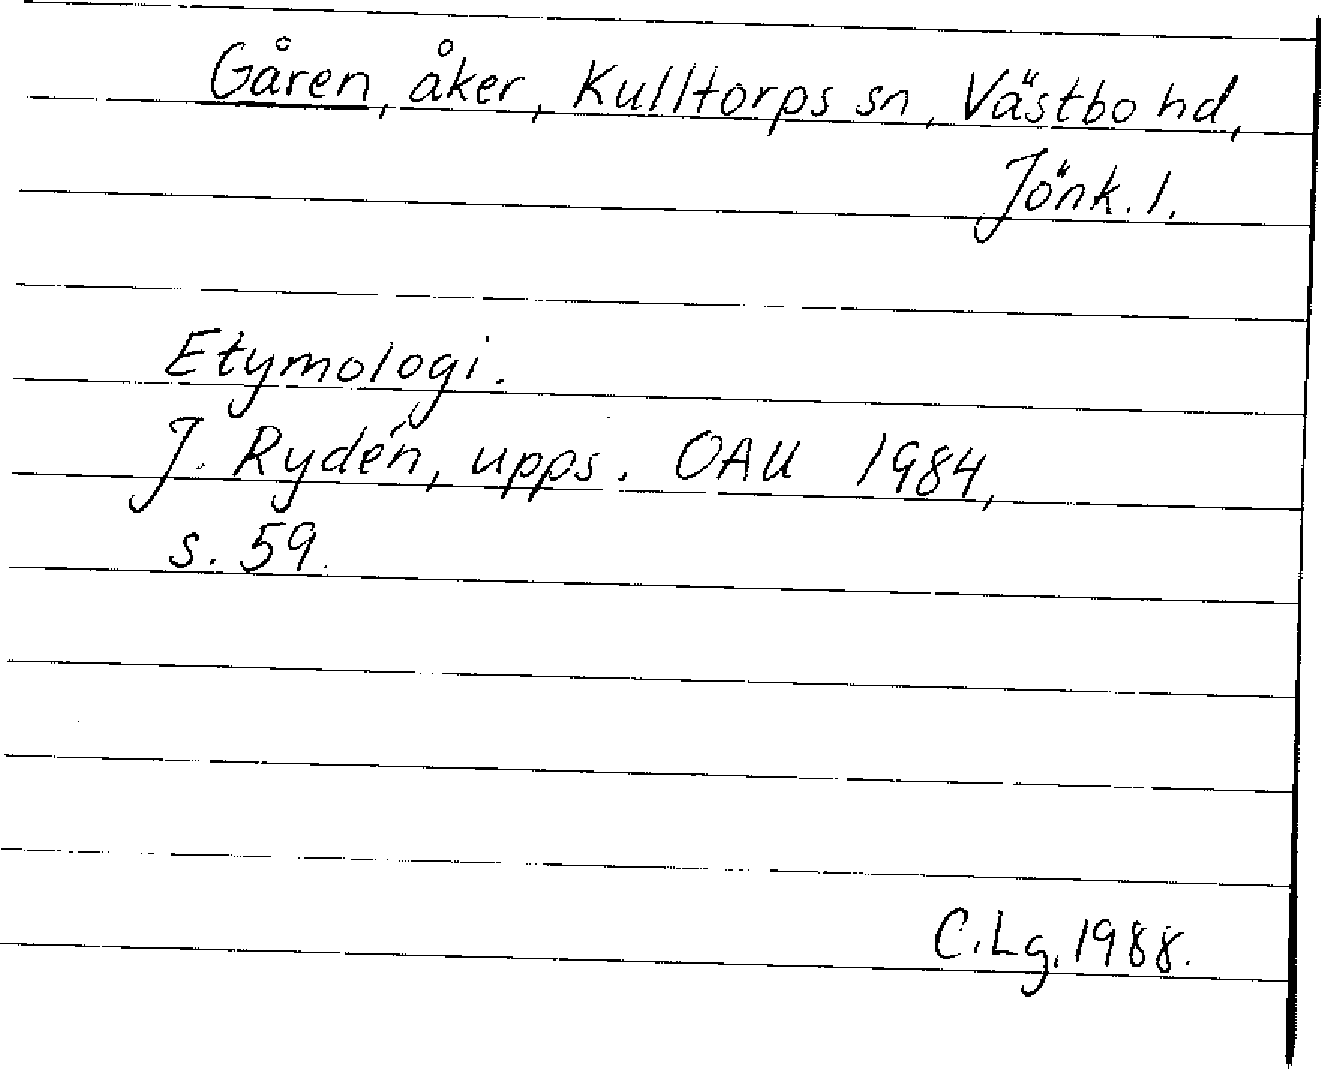 Gåren, åker, Kulltorps sn, Västbo hd,
Jönk. l.
Etymologi.
J. Rydén, upps. OAU 1984,
s. 59.
C.Lg. 1988.